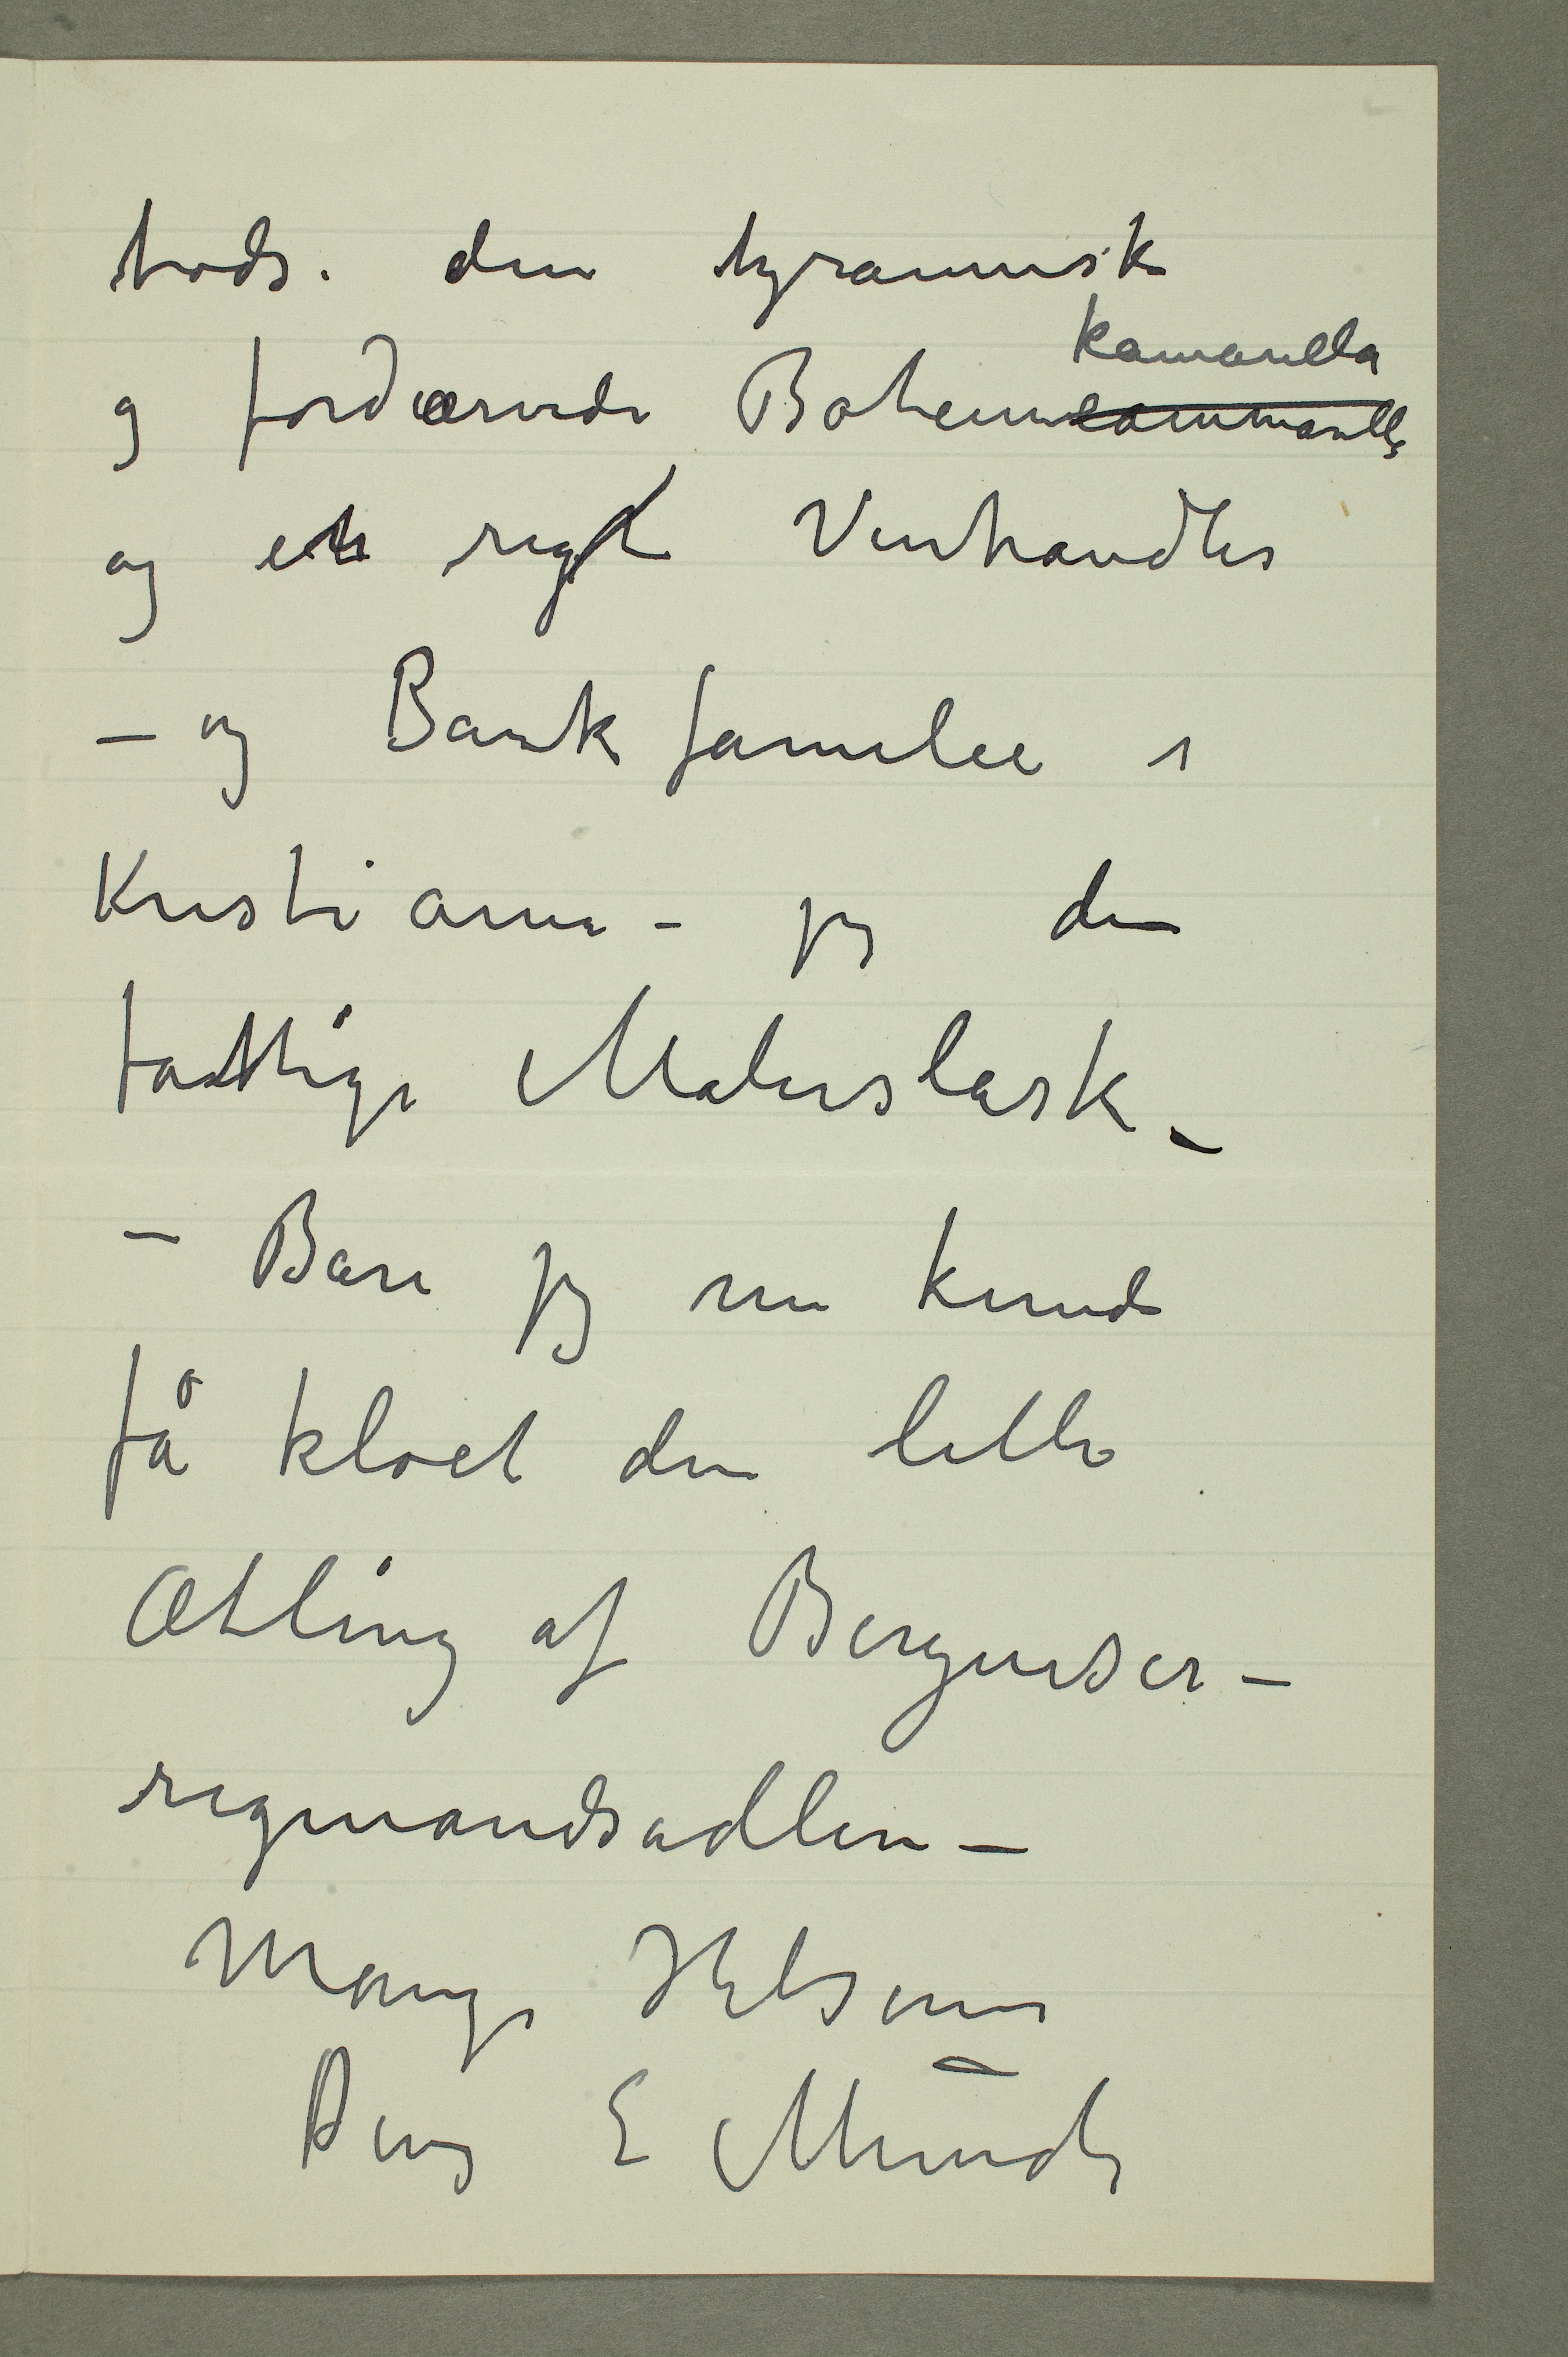 trods. den tyranniske
kamarilla
og fordærvede Bohemecammarilla
og en rig Vinhandler
– og Bankfamilie i
Kristiania – jeg den
fattige Malerslask –
– Bare jeg nu kunde
få kloet den lille
Ætling af Bergenser –
rigmandsadlen –
Mange Hilsener
Din E Munch